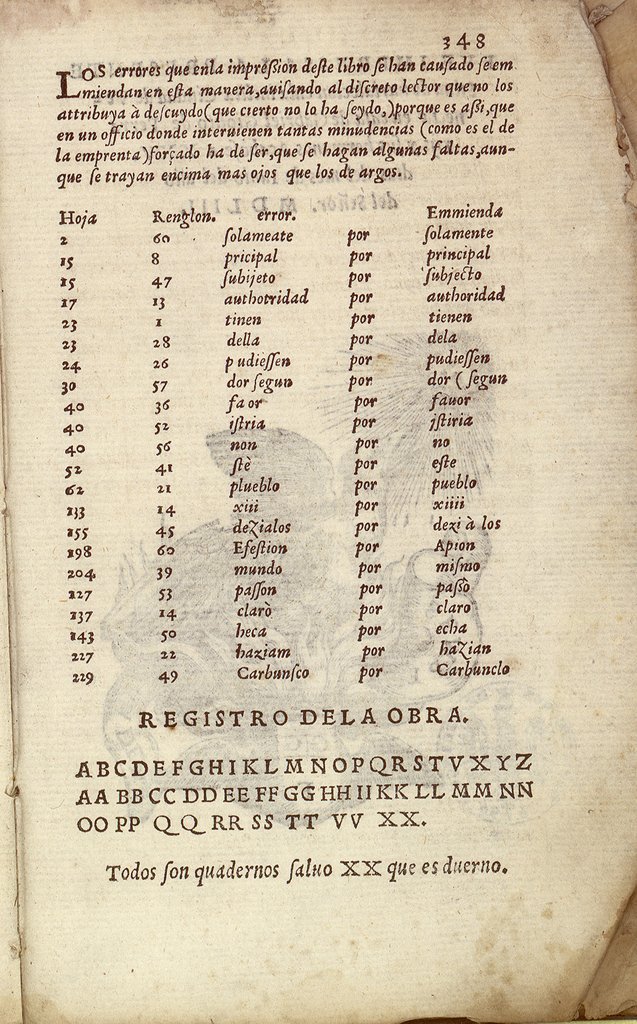 348
LOS errores que enla impreſsion deſte libro ſe han cauſado ſe em
miendan en eſta mavera,auiſando al diſcreto lector que no los
attribuya à deſcuydo(que cierto no lo ha ſeydo,)porque es aßi,que
en un officio donde interuienen tantas minudencias (como es el de
la emprenta)forçado ha de ſer,que ſe hagan algunas faltas,aun-
que ſe trayan encima mas ojos que los de argos.
Hoja Renglon. error. Emmienda
2 60 ſolameate por ſolamente
15 8 pricipal por principal
15 47 ſubijeto por ſubjecto
17 13 authotridad por authoridad
23 1 tinen por tienen
23 28 della por dela
24 26 pudieſſen por pudieſſen
30 57 dor ſegun por dor (ſegun
40 36 fa or por fauor
40 52 iſtria por jſtiria
40 56 non por no
52 41 ſtè por eſte
62 21 plueblo por pueblo
133 14 xiii por xiiii
155 45 dezialos por dezi à los
198 60 Efeſtion por Apion
204 39 mundo por miſmo
127 53 paſſon por paſsò
137 14 clarò por claro
143 50 heca por echa
227 22 haziam por hazian
229 49 Carbunſco por Carbunclo
REGISTRO DELA OBRA.
ABCDEFGHIKLMNOPQRSTVXYZ
AA BB CC DD EE FF GG HH II KK LL MM NN
OO PP QQ RR SS TT VV XX.
Todos ſon quadernos ſaluo XX que es duerno.